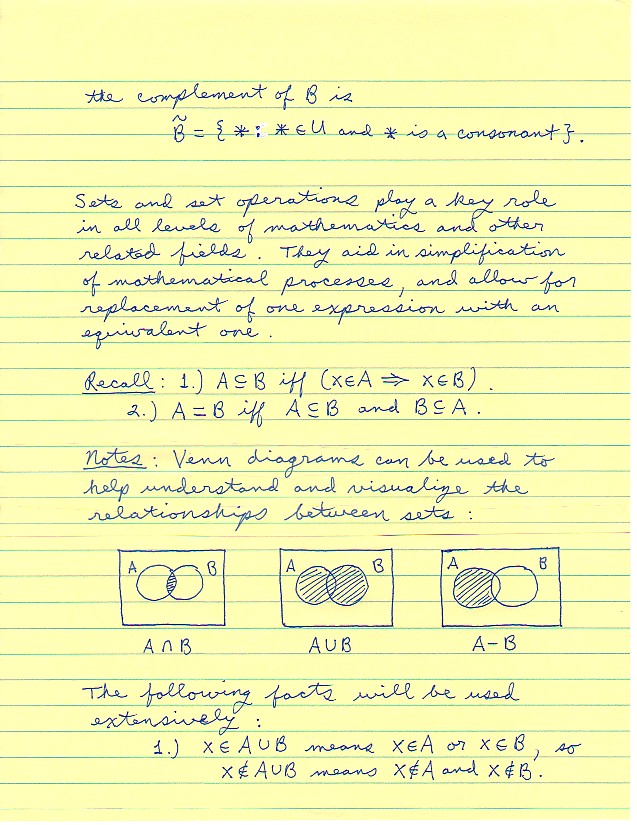 the complement of B is
B̃ = { * : * ∈ U and * is a consonant } .
Sets and set operations play a key role
in all levels of mathematics and other
related fields . They aid in simplification
of mathematical processes, and allow for
replacement of one expression with an
equivalent one .
Recall : 1.) A ⊆ B iff (x∈A ⇒ x∈B) .
2.) A = B iff A ⊆ B and B ⊆ A .
Notes : Venn diagrams can be used to
help understand and visualize the
relationships between sets :
A B A B A B
A ∩ B A ∪ B A − B
The following facts will be used
extensively :
1.) x ∈ A ∪ B means x∈A or x∈B , so
x ∉ A ∪ B means x∉A and x∉B .